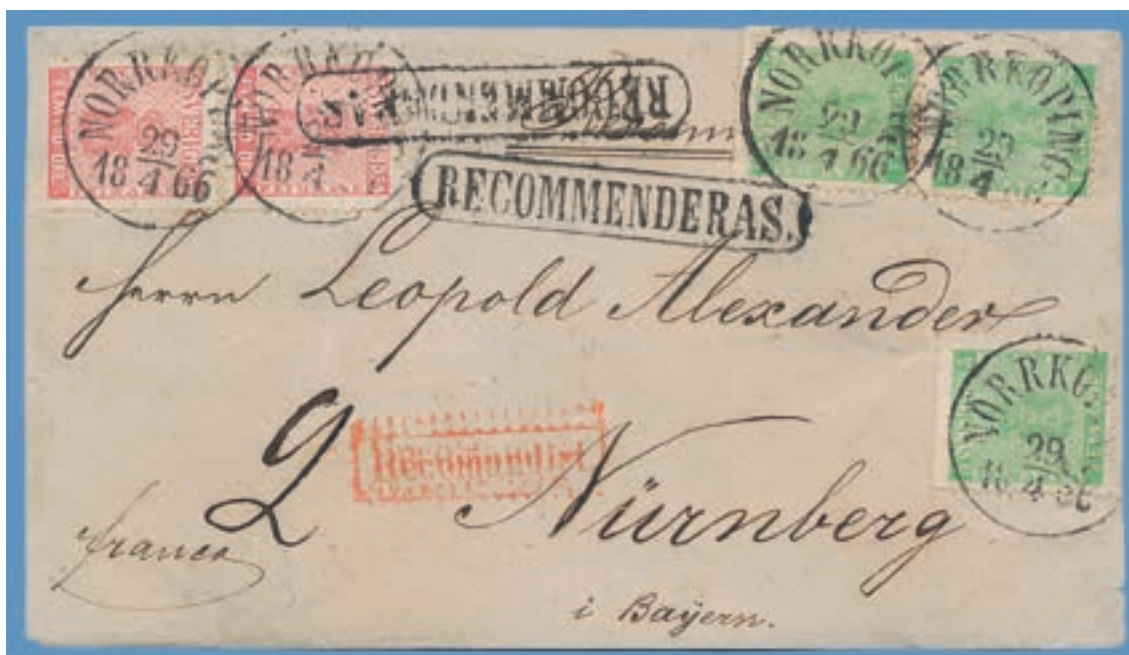 NORRKÖPING
29
4
18 66
NORRKÖPING
18 4
RECOMMENDERAS.
NORRKÖPING
29
4
18 66
NORRKÖPING
29
4
18 66
RECOMMENDERAS.
Herrn Leopold Alexander
NORRKÖ
29
4
18 66
2
Recomandirt
Nürnberg
franco
i Bayern.